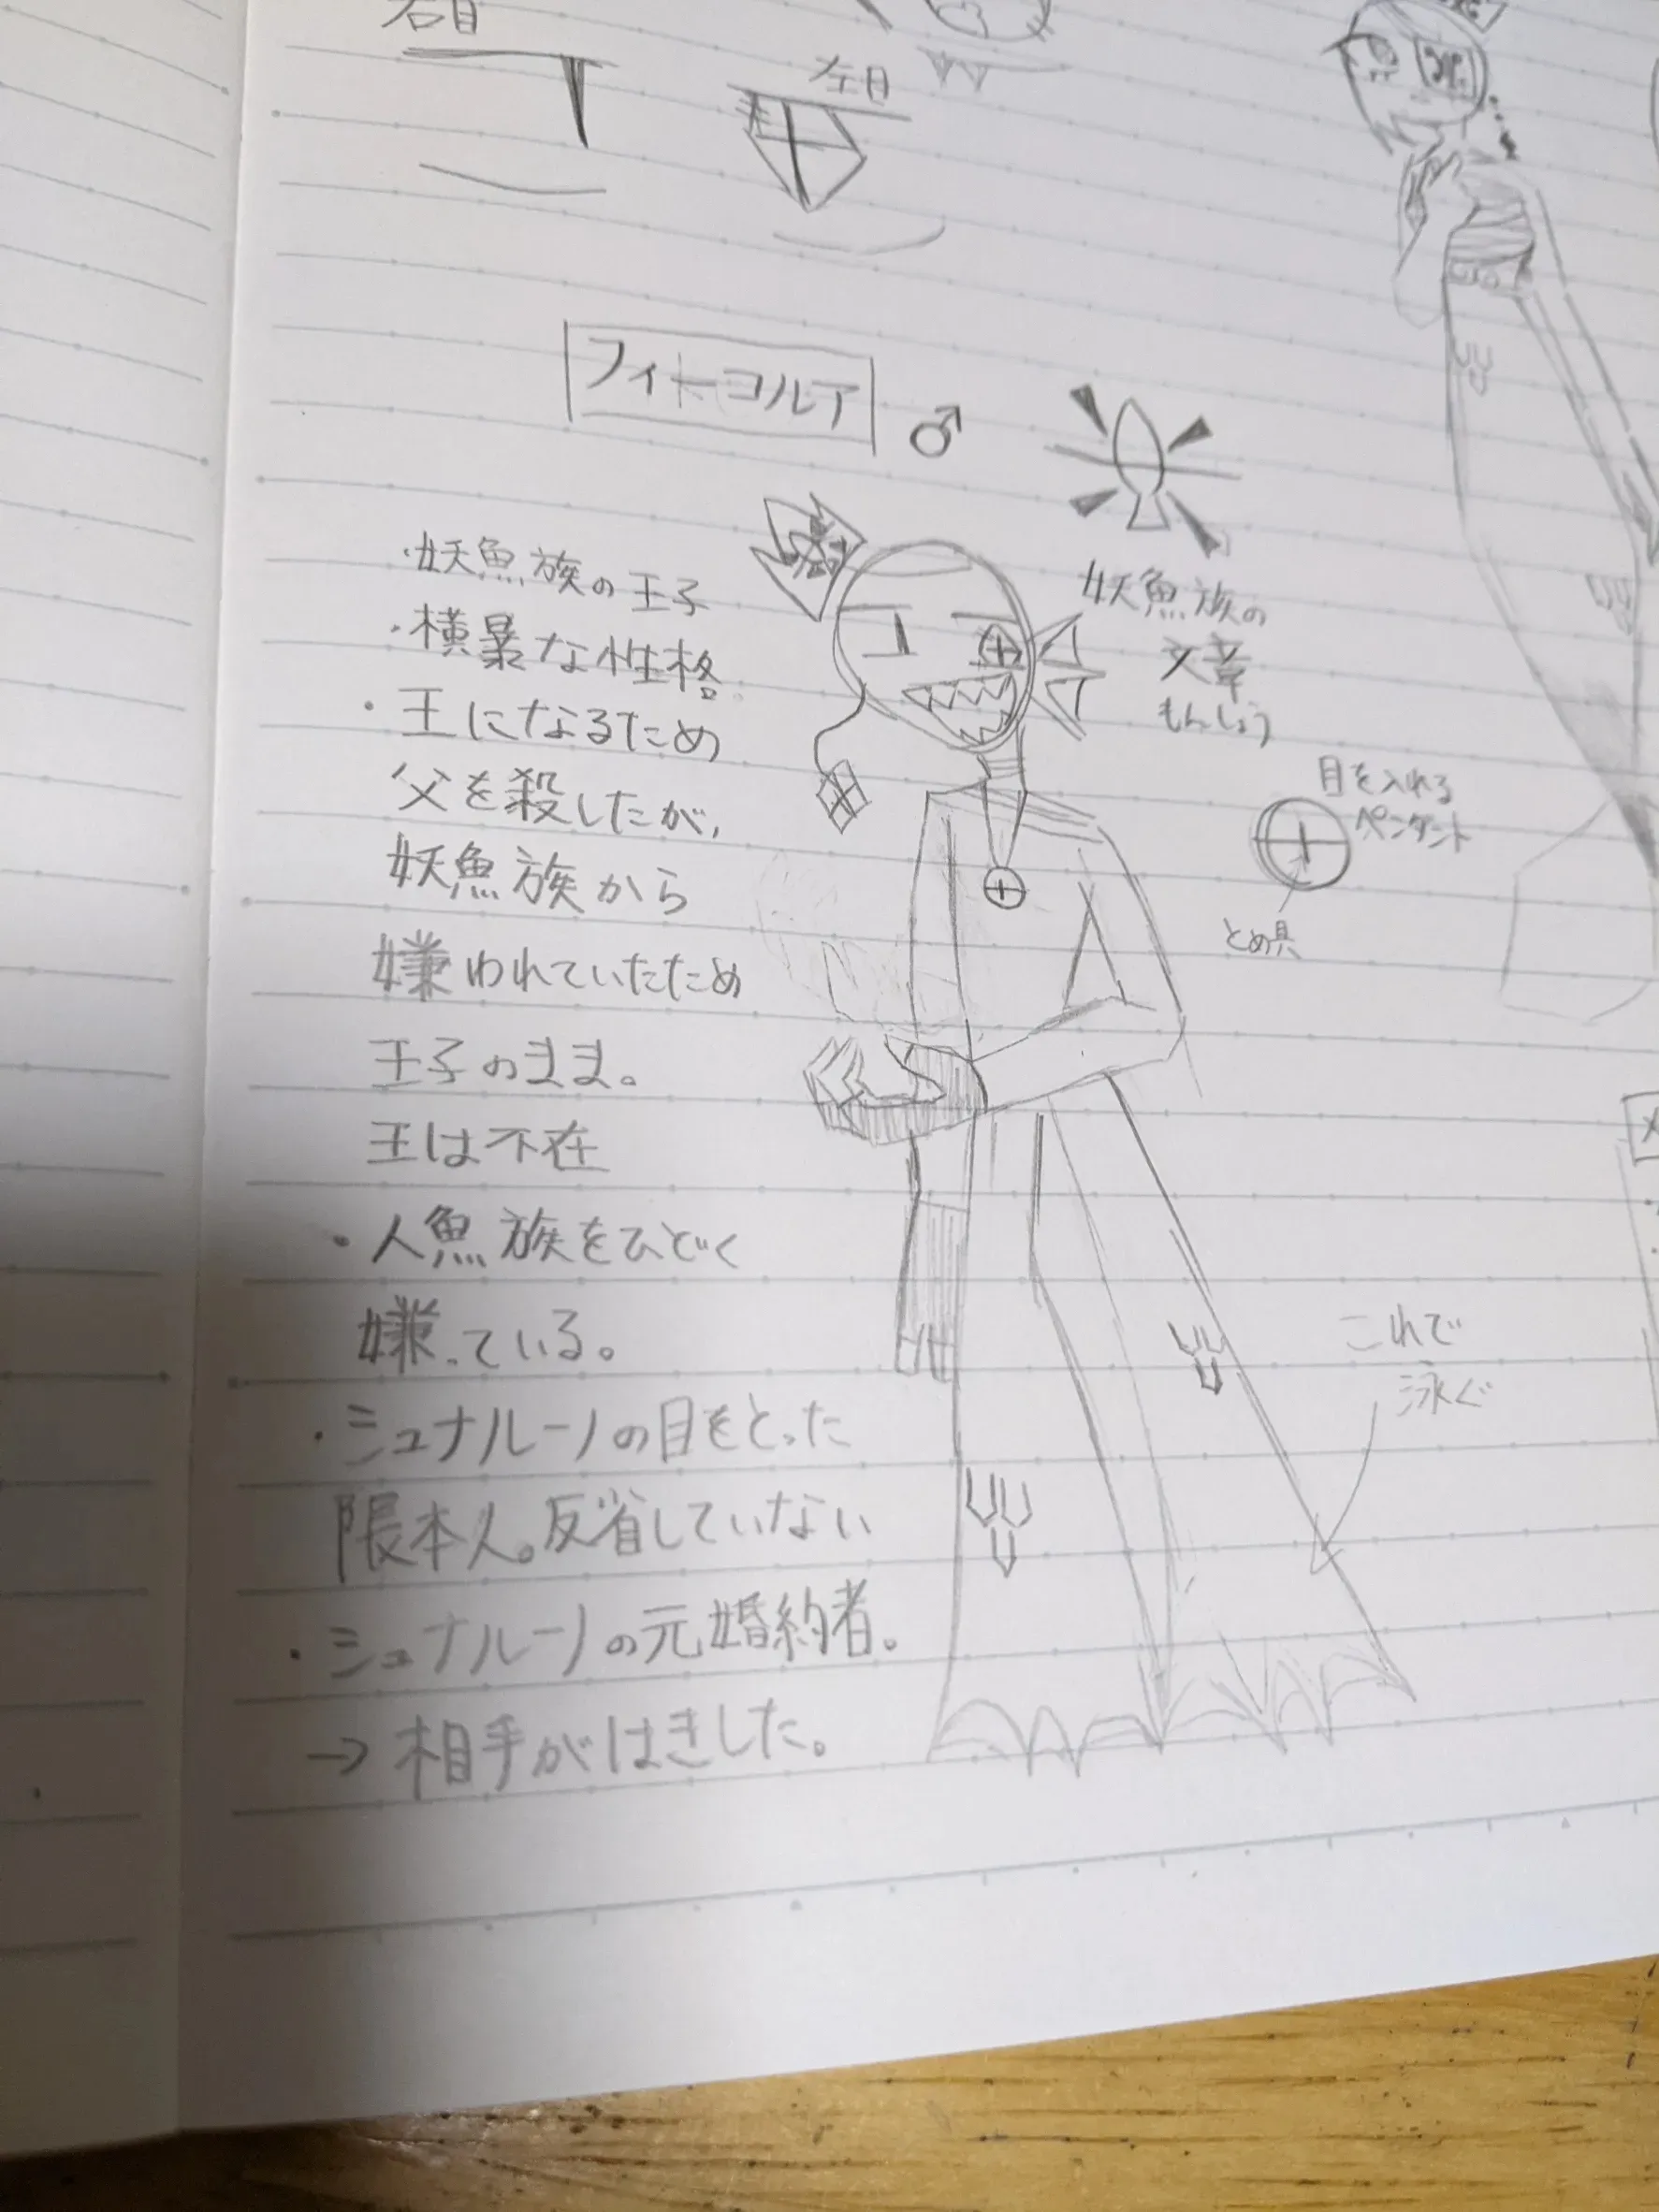 右目
左目
フィトーコルア
♂
・妖魚族の王子
・横暴な性格
・王になるため
父を殺したが、
妖魚族から
嫌われていたため
王子のまま。
王は不在
・人魚族をひどく
嫌っている。
・ミュナルーノの目をとった
張本人。反省していない
・ミュナルーノの元婚約者。
→相手がはきした。
妖魚族の
文章
もんしょう
目を入れる
ペンダント
とめ具
これで
泳ぐ